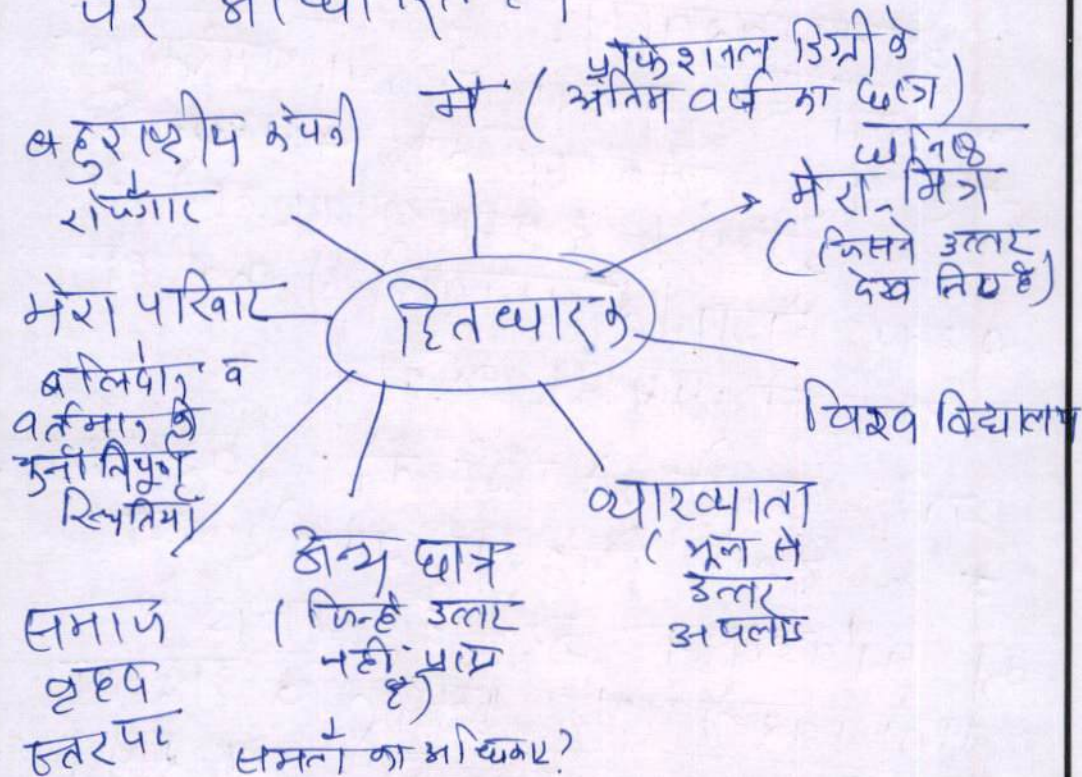 पर
मैं ( प्रोफेशनल डिग्री के
अंतिम वर्ष का छात्र)
बहुराष्ट्रीय कंपनी
↓
रोजगार
घनिष्ठ
मेरा मित्र
( जिसने उत्तर
देख लिया है)
मेरा परिवार
बलिदान व
वर्तमान की
चुनौतिपूर्ण
स्थितियां
हितधारक
विश्व विद्यालय
व्याख्याता
( भूल से
उत्तर
अपलोड
अन्य छात्र
( जिन्हें उत्तर
नहीं प्राप्त
है)
↓
समता का अधिकार?
समाज
वृहद
स्तर पर